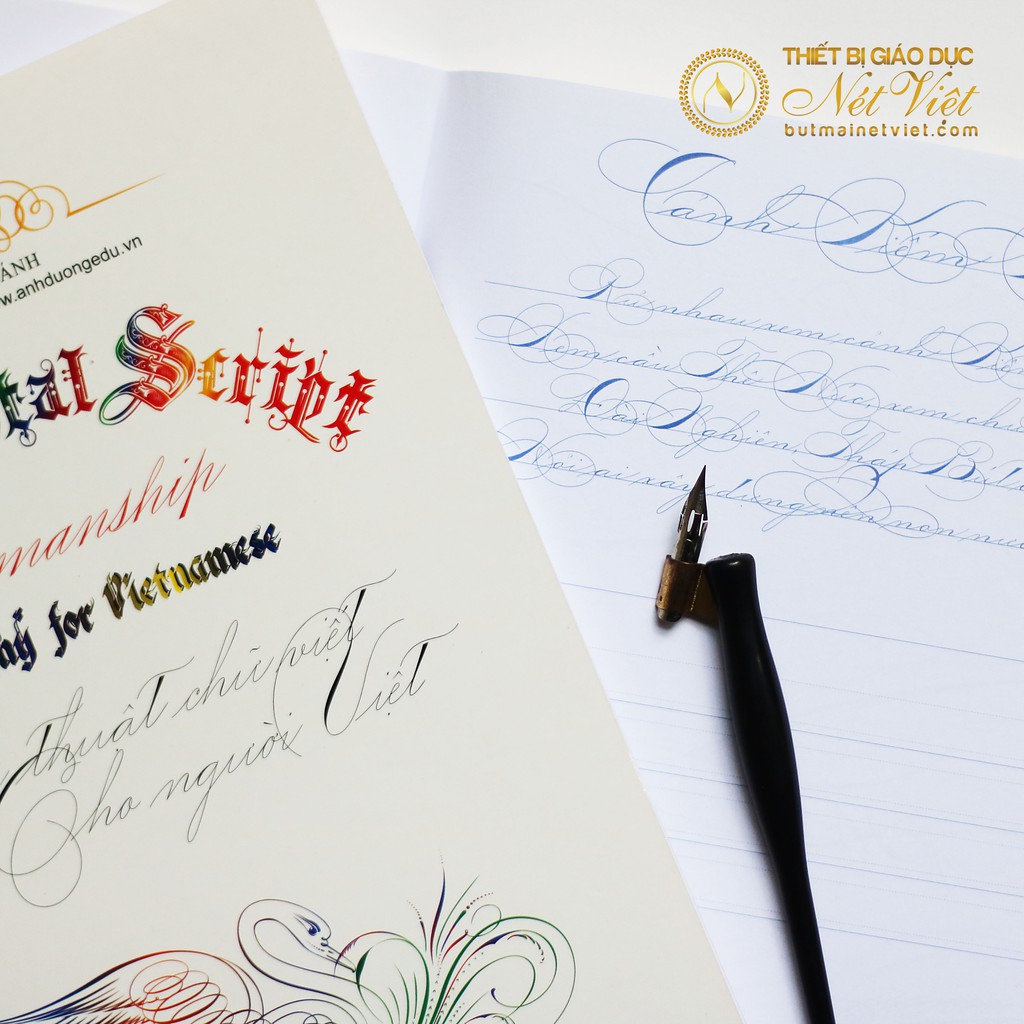 THIẾT BỊ GIÁO DỤC
Nét Việt
butmainetviet.com
ÁNH
w.anhduongedu.vn
tal Script
manship
hy for Vietnamese
thuật chữ việt
cho người Việt
Cánh Kiếm
Rủ nhau xem cảnh Kiếm
Xem cầu Thê Húc, xem chù
Đài Nghiên, Tháp Bút
Hỏi ai xây dựng nên non nước